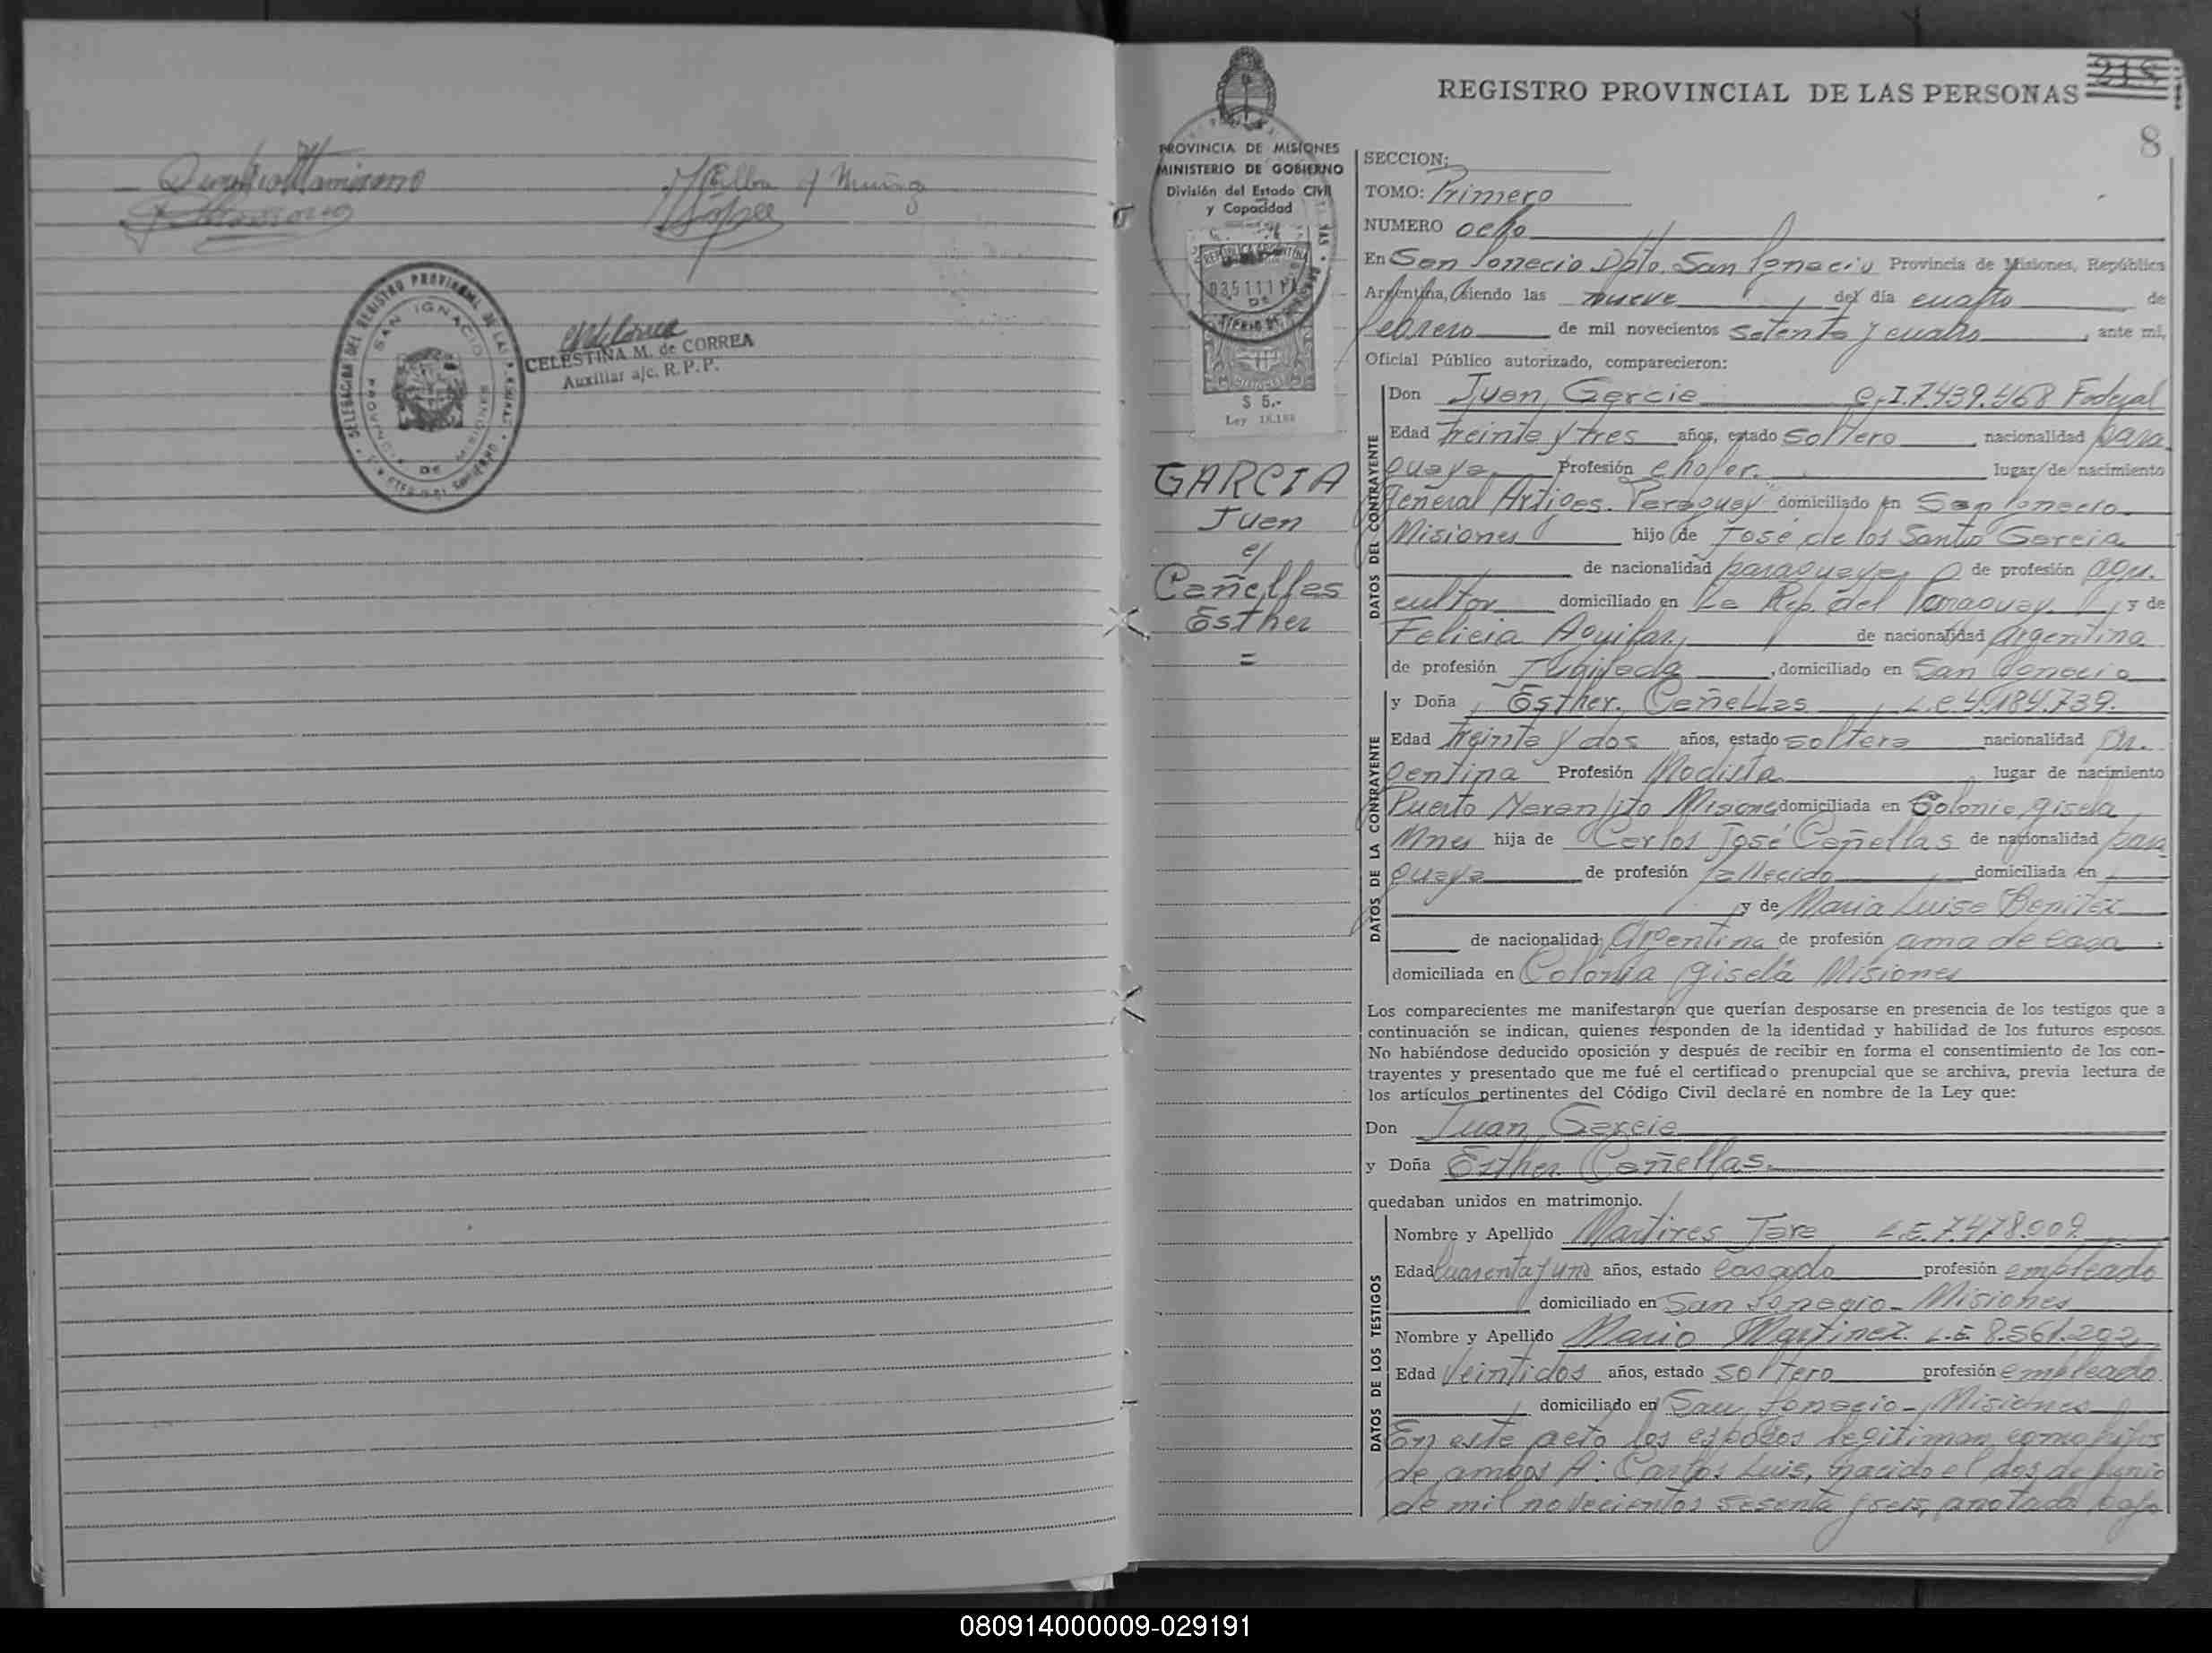 DELEGACION DEL REGISTRO PROVINCIAL DE LAS PERSONAS
SAN IGNACIO
CELESTINA M. de CORREA
Auxiliar a/c. R. P. P.
REGISTRO PROVINCIAL DE LAS PERSONAS
8
PROVINCIA DE MISIONES
MINISTERIO DE GOBIERNO
División del Estado Civil
y Capacidad
REPUBLICA ARGENTINA
$ 5.-
Ley 18.188
GARCIA
Juan
c/
Cañellas
Esther
=
SECCION:
TOMO: Primero
NUMERO ocho
En San Ignacio Dpto. San Ignacio Provincia de Misiones, República
Argentina, siendo las nueve del día cuatro de
febrero de mil novecientos setenta y cuatro, ante mí,
Oficial Público autorizado, comparecieron:
DATOS DEL CONTRAYENTE
Don Juan Garcia C.I.7.439.468 Federal
Edad treinta y tres años, estado soltero, nacionalidad para
guaya Profesión chofer. lugar de nacimiento
General Artigas. Paraguay domiciliado en San Ignacio
Misiones hijo de José de los Santos Garcia
de nacionalidad paraguaya de profesión agri.
cultor domiciliado en La Rep. del Paraguay y de
Felicia Aguilar, de nacionalidad argentina
de profesión Jubilada, domiciliado en San Ignacio
DATOS DE LA CONTRAYENTE
y Doña Esther. Cañellas L.C.4.184.739.
Edad treinta y dos años, estado soltera nacionalidad Ar.
gentina Profesión Modista lugar de nacimiento
Puerto Naranjito Misiones domiciliada en Colonia gisela
Mnes hija de Carlos José Cañellas de nacionalidad para
guaya de profesión fallecido domiciliada en
y de Maria Luisa Benitez
de nacionalidad Argentina de profesión ama de casa.
domiciliada en Colonia gisela Misiones
Los comparecientes me manifestaron que querían desposarse en presencia de los testigos que a
continuación se indican, quienes responden de la identidad y habilidad de los futuros esposos.
No habiéndose deducido oposición y después de recibir en forma el consentimiento de los con-
trayentes y presentado que me fué el certificado prenupcial que se archiva, previa lectura de
los artículos pertinentes del Código Civil declaré en nombre de la Ley que:
Don Juan Garcia
y Doña Esther Cañellas.
quedaban unidos en matrimonio.
DATOS DE LOS TESTIGOS
Nombre y Apellido Martires Jara L.E.7.478.009
Edad cuarenta y uno años, estado casado profesión empleado
domiciliado en San Ignacio - Misiones
Nombre y Apellido Mario Martinez. L.E. 8.561.292
Edad Veintidos años, estado soltero profesión empleado
domiciliado en San Ignacio - Misiones
En este acto los esposos legitiman como hijos
de ambos A: Carlos Luis, nacido el dos de junio
de mil novecientos sesenta y seis, anotado bajo
080914000009-029191